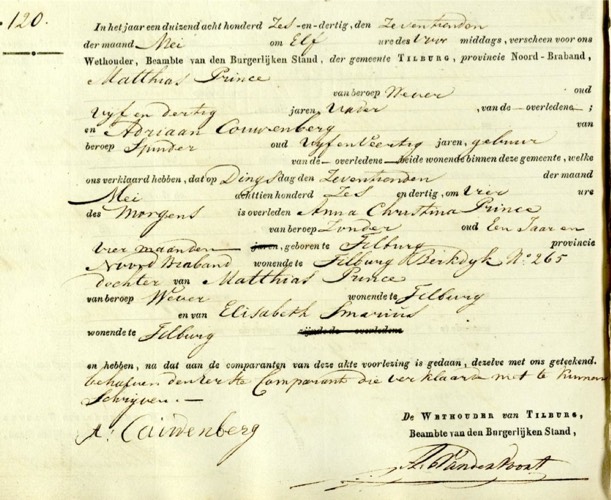 120.
In het jaar een duizend acht honderd Zes-en-dertig, den Zeventienden
der maand Mei om Elf ure des Voor middags, verscheen voor ons
Wethouder, Beambte van den Burgerlijken Stand, der gemeente TILBURG, provincie Noord-Braband,
Matthias Prince
van beroep Wever oud
Vyf en dertig jaren, Vader , van de overledene ;
en Adriaan Couwenberg van
beroep Spinder oud Vyf en Veertig jaren, gebuur
van de overledene beide wonende binnen deze gemeente, welke
ons verklaard hebben, dat op Dingsdag den Zeventienden der maand
Mei achttien honderd Zes en dertig, om Vier ure
des Morgens is overleden Anna Christina Prince
van beroep Zonder oud Een Jaar en
Vier maanden jaren, geboren te Tilburg provincie
Noord Braband wonende te Tilburg Berkdyk No 265
dochter van Matthias Prince
van beroep Wever wonende te Tilburg
en van Elisabeth Smerius
wonende te Tilburg zijnde de overledene
en hebben, na dat aan de comparanten van deze akte voorlezing is gedaan, dezelve met ons geteekend.
behalven den eerste Comparant die verklaarde niet te kunnen
Schryven.—
A: Cauwenberg
De WETHOUDER van TILBURG,
Beambte van den Burgerlijken Stand,